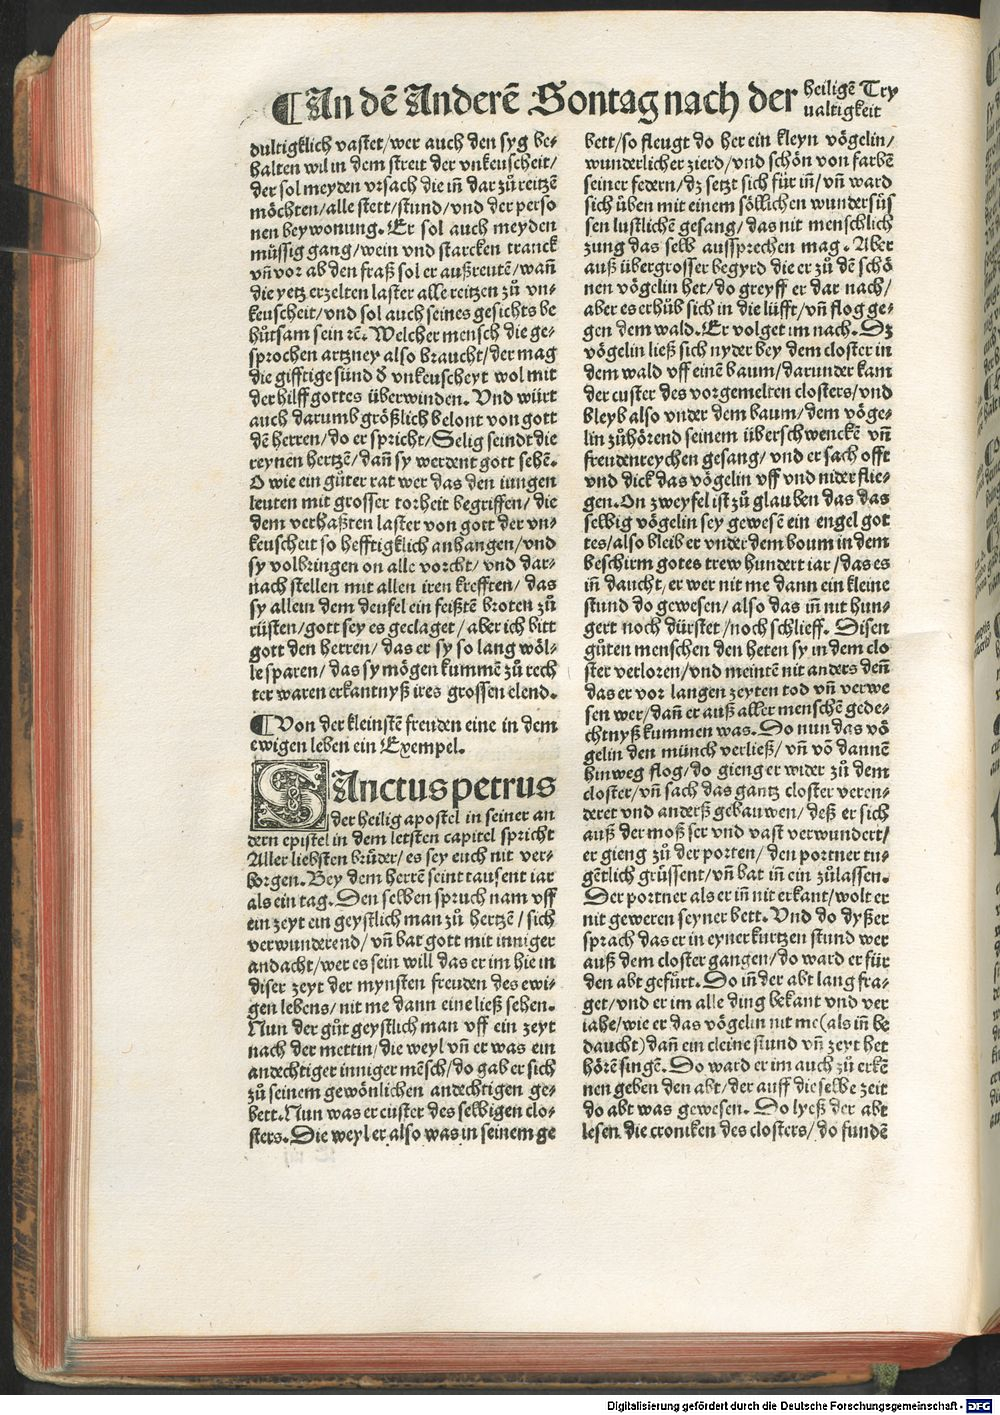 ¶ An dē Anderē Sontag nach der heiligē Try
ualtigkeit
dultigklich vastet/wer auch den syg be-
halten wil in dem streit der vnkeuscheit/
der sol meyden vrsach die in̄ dar zů reitzē
möchten/alle stett/stund/vnd der perso
nen beywonung. Er sol auch meyden
müssig gang/wein vnd starcken tranck
vn̄ vor ab den fraß sol er außreutē/wan̄
die yetz erzelten laster alle reitzen zů vn-
keuscheit/vnd sol auch seines gesichts be
hůtsam sein rē. Welcher mensch die ge-
sprochen artzney also braucht/der mag
die gifftige sünd d̕ vnkeuscheyt wol mit
der hilff gottes überwinden. Vnd würt
auch darumb größlich belont von gott
dē herren/do er spricht/Selig seindt die
reynen hertzē/dan̄ sy werdent gott sehē.
O wie ein gůter rat wer das den iungen
leuten mit grosser torheit begriffen/die
dem verhaßten laster von gott der vn-
keuscheit so hefftigklich anhangen/vnd
sy volbringen on alle vorcht/vnd dar-
nach stellen mit allen iren krefften/das
sy allein dem deufel ein feißtē broten zů
rüsten/gott sey es geclaget/aber ich bitt
gott den herren/das er sy so lang wöl-
le sparen/das sy mögen kummē zů rech
ter waren erkantnyß ires grossen elend.
¶ Von der kleinstē freuden eine in dem
ewigen leben ein Exempel.
SAnctus petrus
der heilig apostel in seiner an
dern epistel in dem letsten capitel spricht
Aller liebsten brůder/es sey euch nit ver-
borgen. Bey dem herrē seint tausent iar
als ein tag. Den selben spruch nam vff
ein zeyt ein geystlich man zů hertzē/sich
verwunderend/vn̄ bat gott mit inniger
andacht/wer es sein will das er im hie in
diser zeyt der mynsten freuden des ewi-
gen lebens/nit me dann eine ließ sehen.
Nun der gůt geystlich man vff ein zeyt
nach der mettin/die weyl vn̄ er was ein
andechtiger inniger mēsch/do gab er sich
zů seinem gewönlichen andechtigen ge-
bett. Nun was er custer des selbigen clo-
sters. Die weyl er also was in seinem ge
bett/so fleugt do her ein kleyn vögelin/
wunderlicher zierd/vnd schön von farbē
seiner federn/dz setzt sich für in̄/vn̄ ward
sich üben mit einem söllichen wundersüs
sen lustlichē gesang/das nit menschlich
zung das selb aussprechen mag. Aber
auß übergrosser begyrd die er zů dē schö
nen vögelin het/do greyff er dar nach/
aber es erhůb sich in die lüfft/vn̄ flog ge-
gen dem wald. Er volget im nach. Dz
vögelin ließ sich nyder bey dem closter in
dem wald vff einē baum/darunder kam
der custer des vorgemelten closters/vnd
bleyb also vnder dem baum/dem vöge-
lin zůhörend seinem überschwenckē vn̄
freudenreychen gesang/vnd er sach offt
vnd dick das vögelin vff vnd nider flie-
gen. On zweyfel ist zů glauben das das
selbig vögelin sey gewesē ein engel got
tes/also bleib er vnder dem boum in dem
beschirm gotes trew hundert iar/das es
in̄ daucht/er wer nit me dann ein kleine
stund do gewesen/also das in̄ nit hun-
gert noch dürstet/noch schlieff. Disen
gůten menschen den heten sy in dem clo
ster verloren/vnd meintē nit anders den̄
das er vor langen zeyten tod vn̄ verwe
sen wer/dan̄ er auß aller menschē gede-
chtnyß kummen was. Do nun das vö
gelin den münch verließ/vn̄ vō dannē
hinweg flog/do gieng er wider zů dem
closter/vn̄ sach das gantz closter veren-
deret vnd anderß gebauwen/deß er sich
auß der moß ser vnd vast verwundert/
er gieng zů der porten/den portner tu-
gētlich grüssent/vn̄ bat in̄ ein zůlassen.
Der portner als er in̄ nit erkant/wolt er
nit geweren seyner bett. Vnd do dyßer
sprach das er in eyner kurtzen stund wer
auß dem closter gangen/do ward er für
den abt gefůrt. Do in̄ der abt lang fra-
get/vnd er im alle ding bekant vnd ver
iahe/wie er das vögelin nit me(als in̄ be
daucht)dan̄ ein cleine stund vn̄ zeyt het
hörē singē. Do ward er im auch zů erkē
nen geben den abt/der auff die selbe zeit
do abt was gewesen. Do lyeß der abt
lesen die croniken des closters/do fundē
Digitalisierung gefördert durch die Deutsche Forschungsgemeinschaft - DFG